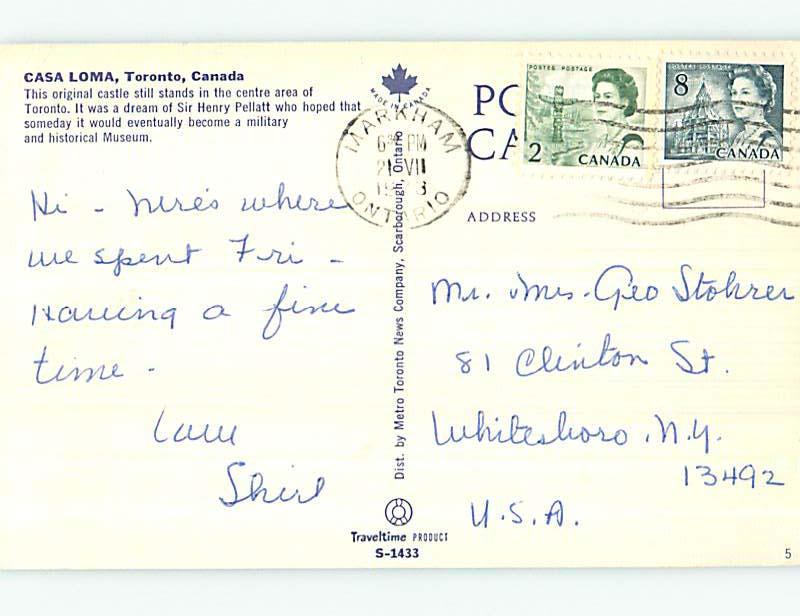 CASA LOMA, Toronto, Canada
This original castle still stands in the centre area of
Toronto. It was a dream of Sir Henry Pellatt who hoped that
someday it would eventually become a military
and historical Museum.
Hi - here's where
we spent Fri -
Having a fine
time -
Love
Shirl
MADE IN CANADA
Dist. by Metro Toronto News Company, Scarborough, Ontario
Traveltime PRODUCT
S-1433
MARKHAM
PM
21 VII
ONTARIO
POSTES POSTAGE
2 CANADA
POSTES POSTAGE
8 CANADA
PO
CA
ADDRESS
Mr. Mrs. Geo Stohrer
81 Clinton St.
Whitesboro, N.Y.
13492
U.S.A.
5